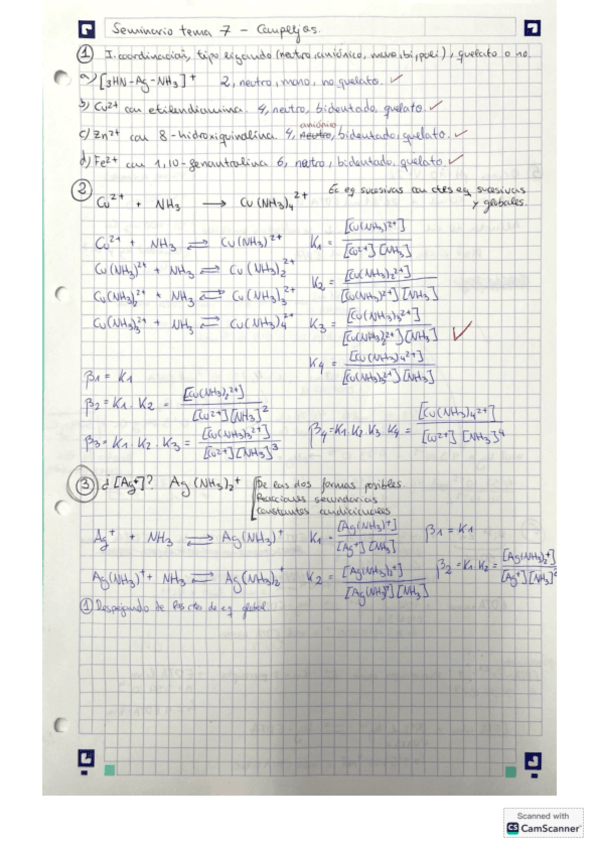 Seminario tema 7 - Complejos.
① I. coordinación, tipo ligando (neutro, aniónico, mono, bi, poli), quelato o no.
a) [3HN-Ag-NH3]+ 2, neutro, mono, no quelato. ✓
b) Cu2+ con etilendiamina. 4, neutro, bidentado, quelato. ✓
aniónico
c) Zn2+ con 8-hidroxiquinolina. 4, neutro, bidentado, quelato. ✓
d) Fe2+ con 1,10-fenantrolina 6, neutro, bidentado, quelato. ✓
② Cu2+ + NH3 → Cu(NH3)4 2+ Ec eq sucesivas con ctes eq sucesivas
y globales.
Cu2+ + NH3 ⇌ Cu(NH3)2+ K1 = [Cu(NH3)2+] / [Cu2+][NH3]
Cu(NH3)2+ + NH3 ⇌ Cu(NH3)2 2+ K2 = [Cu(NH3)2 2+] / [Cu(NH3)2+][NH3]
Cu(NH3)2 2+ + NH3 ⇌ Cu(NH3)3 2+ K3 = [Cu(NH3)3 2+] / [Cu(NH3)2 2+][NH3] ✓
Cu(NH3)3 2+ + NH3 ⇌ Cu(NH3)4 2+
K4 = [Cu(NH3)4 2+] / [Cu(NH3)3 2+][NH3]
β1 = K1
β2 = K1 · K2 = [Cu(NH3)2 2+] / [Cu2+][NH3]2
β3 = K1 · K2 · K3 = [Cu(NH3)3 2+] / [Cu2+][NH3]3 β4 = K1·K2·K3·K4 = [Cu(NH3)4 2+] / [Cu2+][NH3]4
③ ¿[Ag+]? Ag(NH3)2+ De las dos formas posibles
Reacciones secundarias
Constantes condicionales
Ag+ + NH3 ⇌ Ag(NH3)+ K1 = [Ag(NH3)+] / [Ag+][NH3] β1 = K1
Ag(NH3)+ + NH3 ⇌ Ag(NH3)2+ K2 = [Ag(NH3)2+] / [Ag(NH3)+][NH3] β2 = K1·K2 = [Ag(NH3)2+] / [Ag+][NH3]2
① Despejando de las ctes de eq global.
Scanned with
CS CamScanner